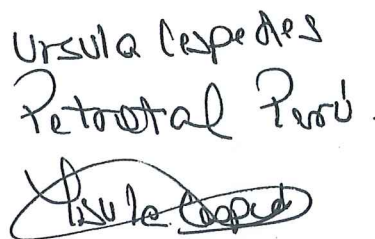 Ursula Cespedes
Petrotal Perú.
Ursula Cesped